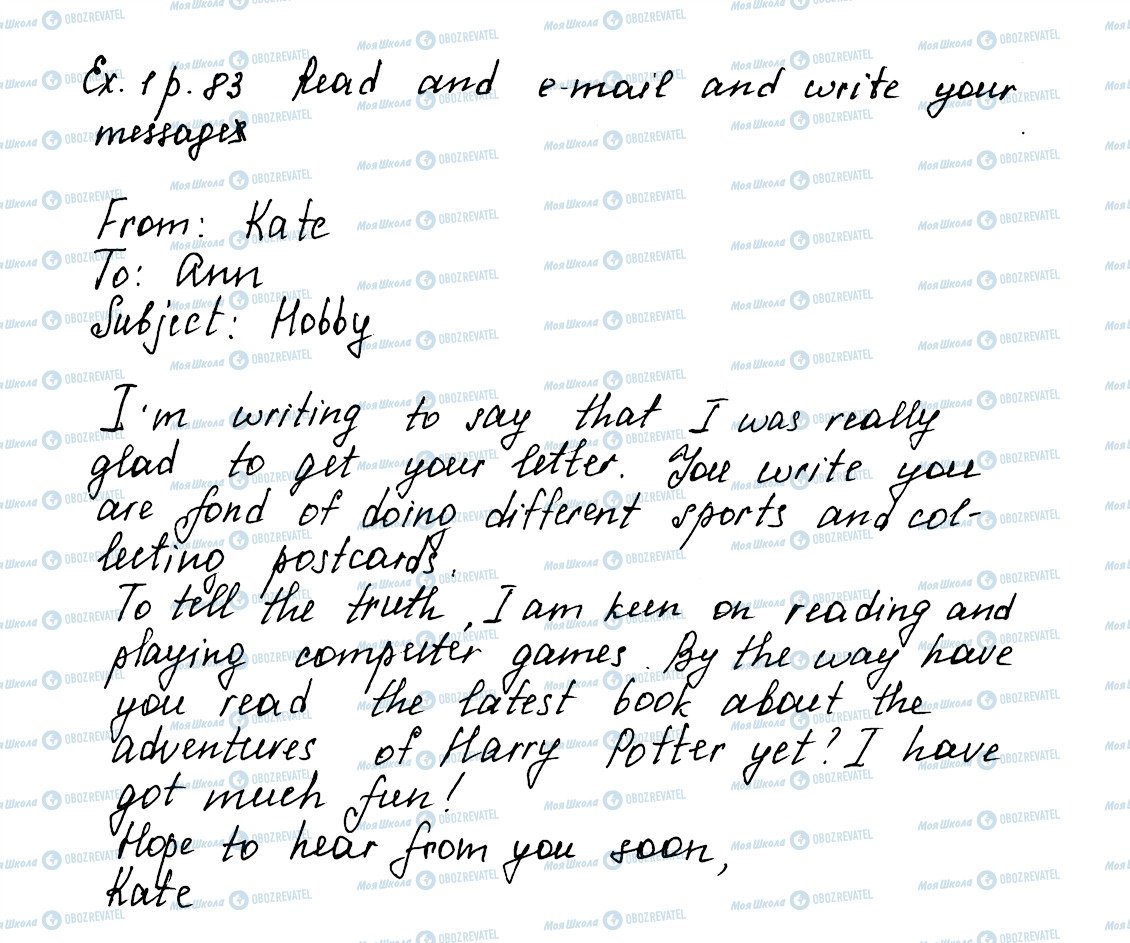 Ex. 1 p. 83 Read and e-mail and write your
messages
From: Kate
To: Ann
Subject: Hobby
I'm writing to say that I was really
glad to get your letter. You write you
are fond of doing different sports and col-
lecting postcards.
To tell the truth, I am keen on reading and
playing computer games. By the way have
you read the latest book about the
adventures of Harry Potter yet? I have
got much fun!
Hope to hear from you soon,
Kate
МояШкола OBOZREVATEL